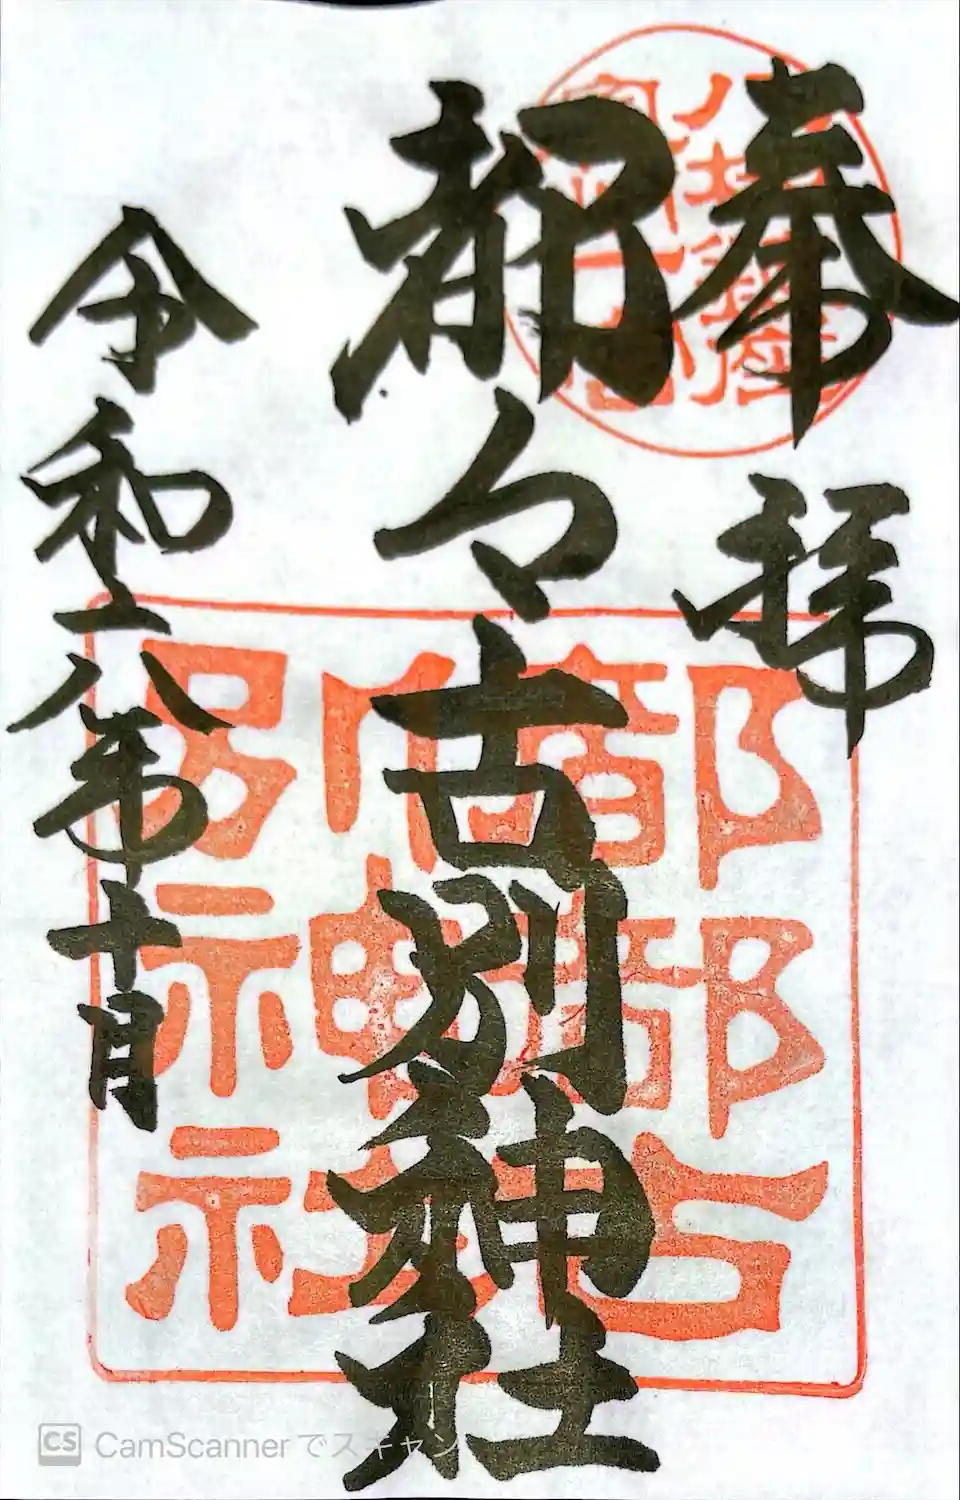 奉拝
都々古別神社
令和六年十月
都都古
別神社
CS CamScannerでスキャン